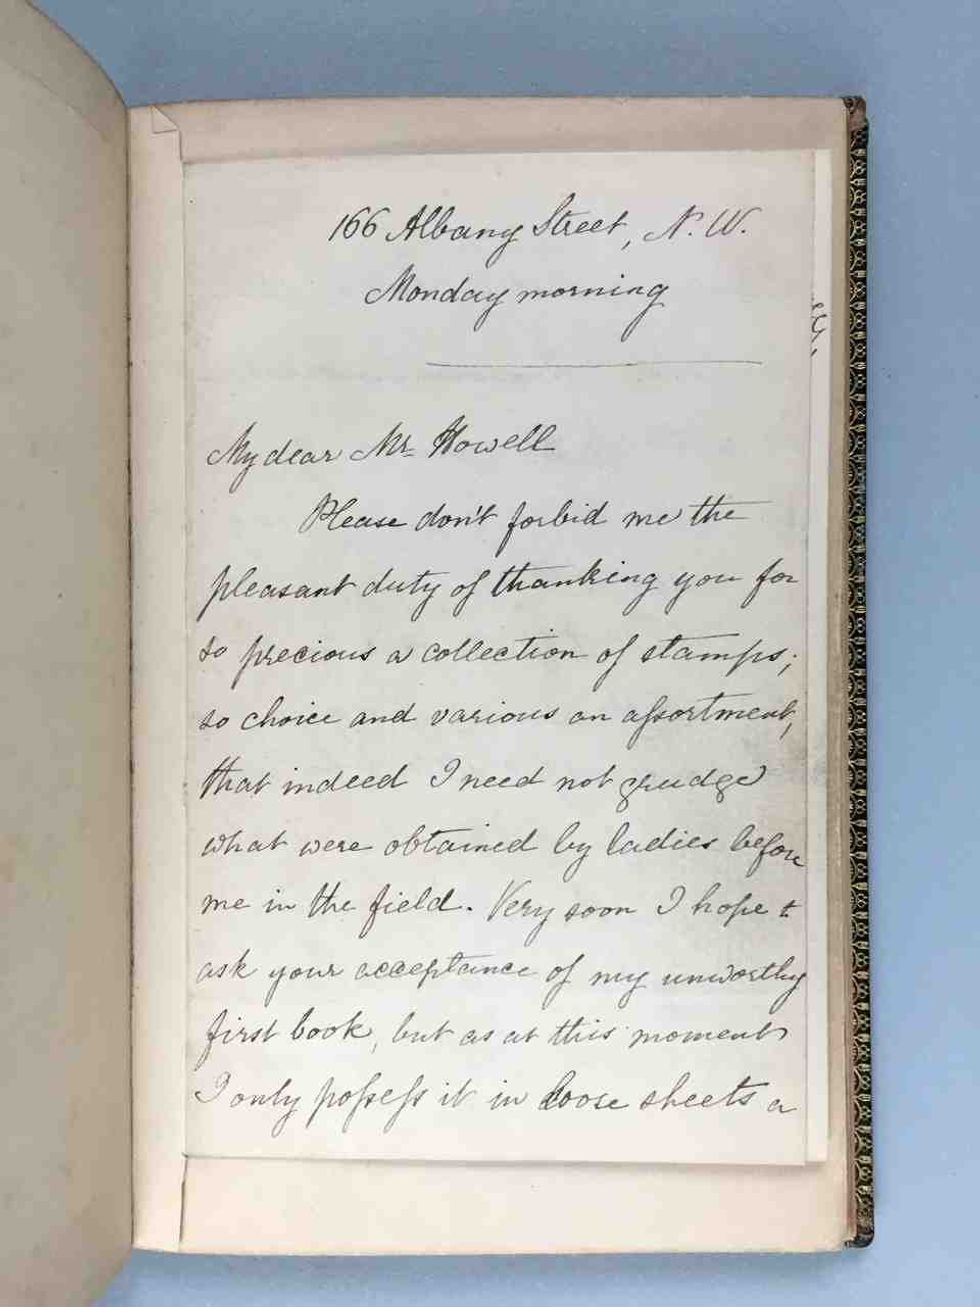 166 Albany Street, N. W.
Monday morning
My dear Mr. Howell
Please don't forbid me the
pleasant duty of thanking you for
so precious a collection of stamps;
so choice and various an assortment,
that indeed I need not grudge
what were obtained by ladies before
me in the field. Very soon I hope to
ask your acceptance of my unworthy
first book, but as at this moment
I only possess it in loose sheets a